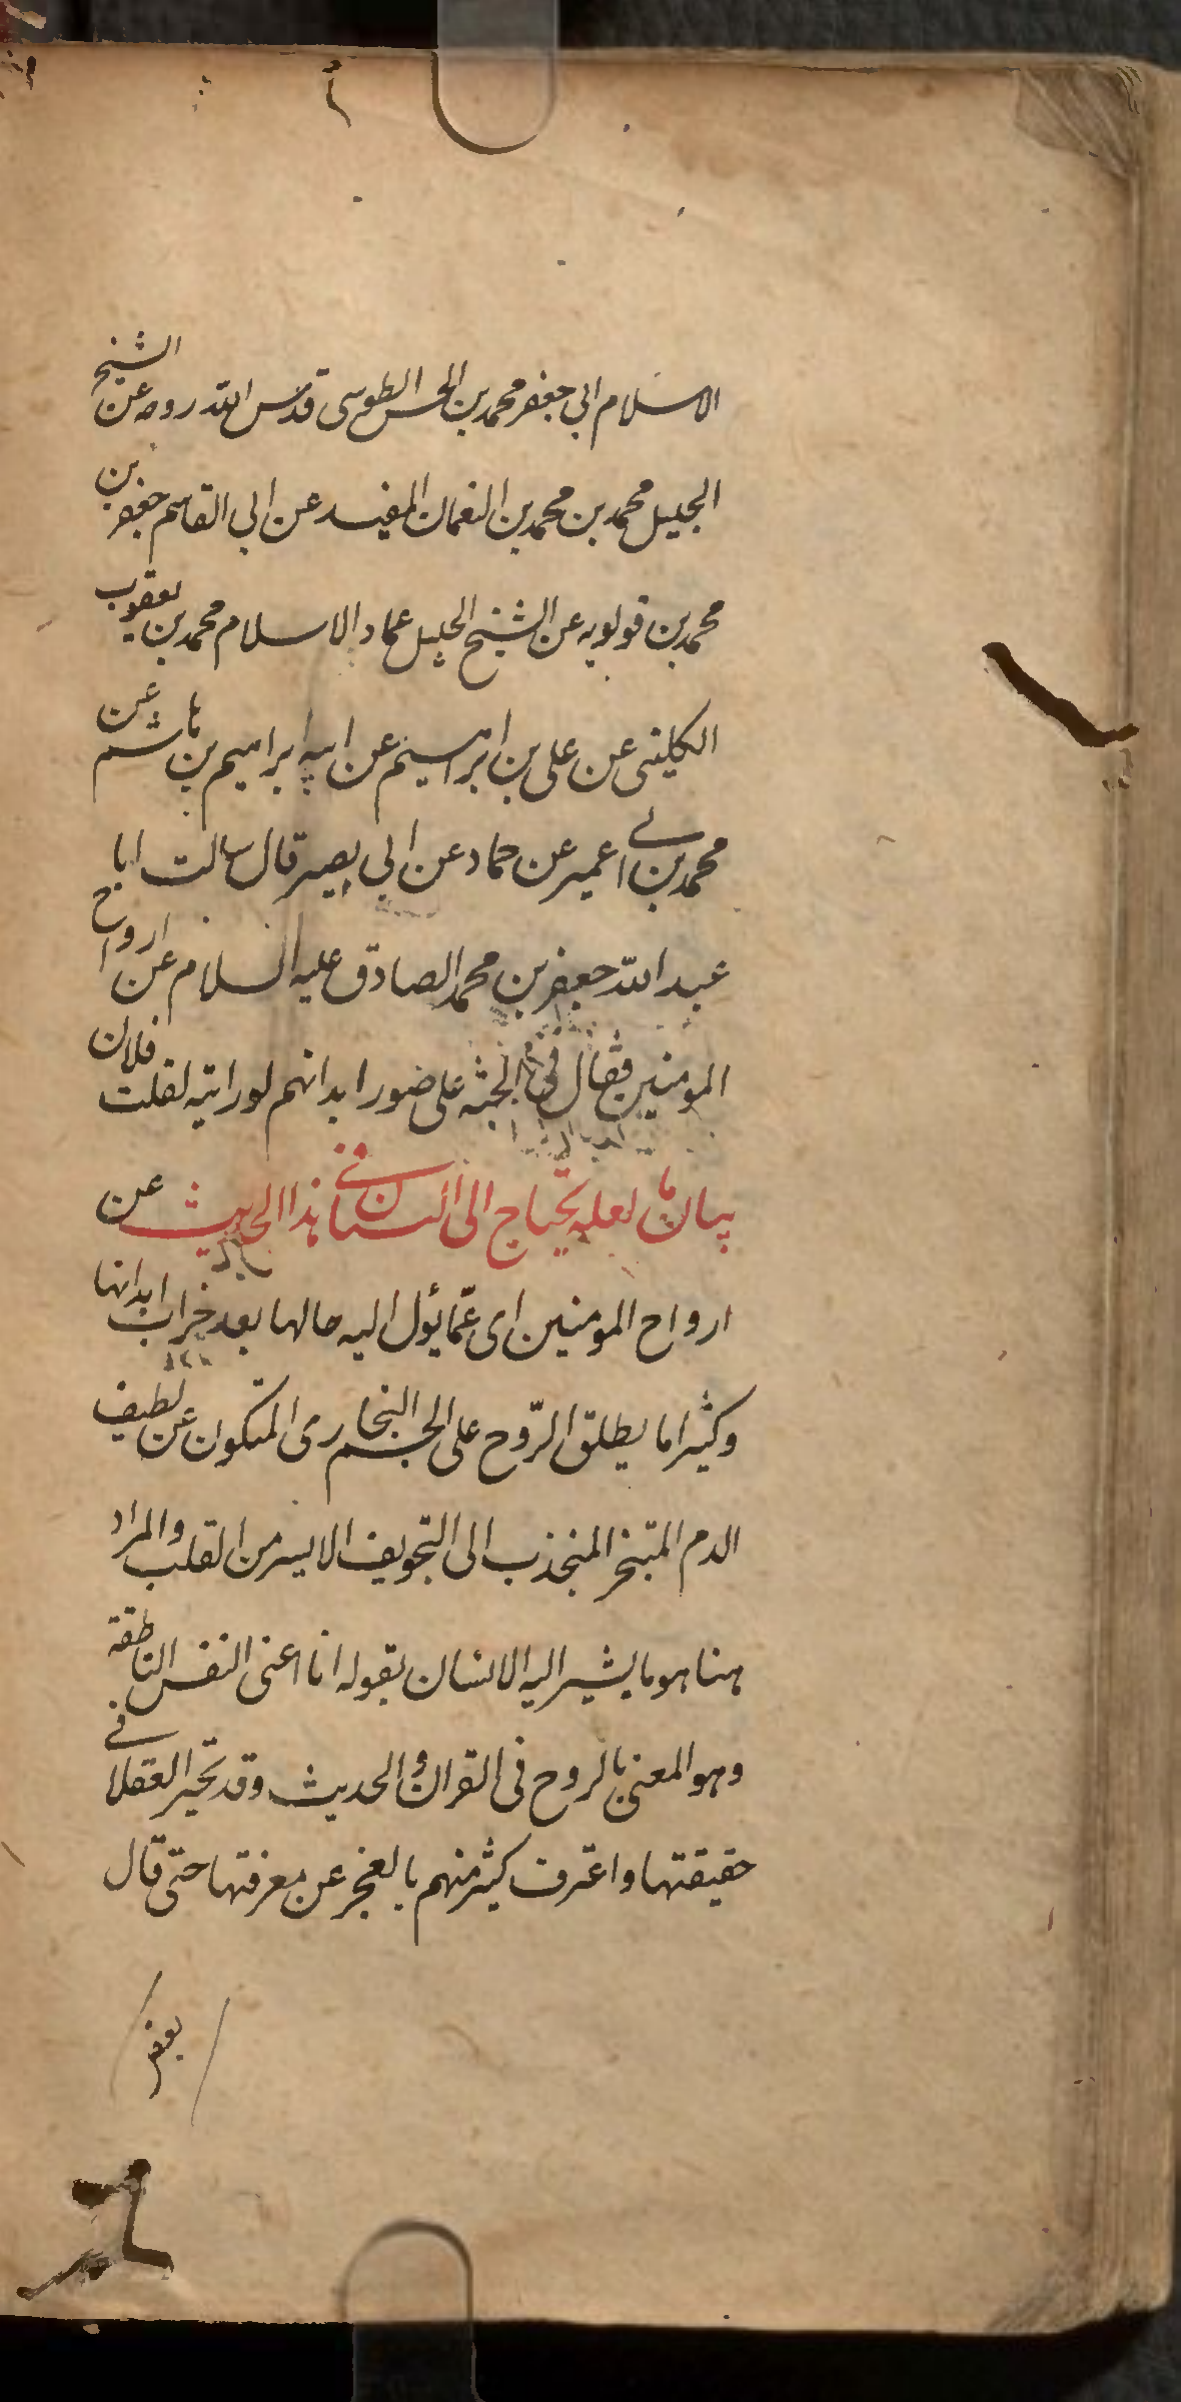 الاسلام ابی جعفر محمد بن الحسن الطوسی قدس الله روحه عن الشیخ
الجلیل محمد بن محمد بن النعمان المفید عن ابی القاسم جعفر بن
محمد بن قولویه عن الشیخ الجلیل عماد الاسلام محمد بن یعقوب
الکلینی عن علی بن ابراهیم عن ابیه ابراهیم بن هاشم عن
محمد بن ابی عمیر عن حماد عن ابی بصیر قال سالت ابا
عبد الله جعفر بن محمد الصادق علیه السلام عن ارواح
المومنین فقال فی الجنة علی صور ابدانهم لو رایته لقلت فلان
بیان ما لعله یحتاج الی البیان فی هذا الحدیث عن
ارواح المومنین ای عمّا یؤل الیه حالها بعد خراب ابدانها
وکثیرا ما یطلق الرّوح علی الجسم البخاری المتکون عن لطیف
الدم المتبخر المنجذب الی التجویف الایسر من القلب والمراد
هنا هو ما یشیر الیه الانسان بقوله انا اعنی النفس الناطقة
وهو المعنی بالروح فی القران والحدیث وقد تحیر العقلا فی
حقیقتها واعترف کثیر منهم بالعجز عن معرفتها حتی قال
بعض